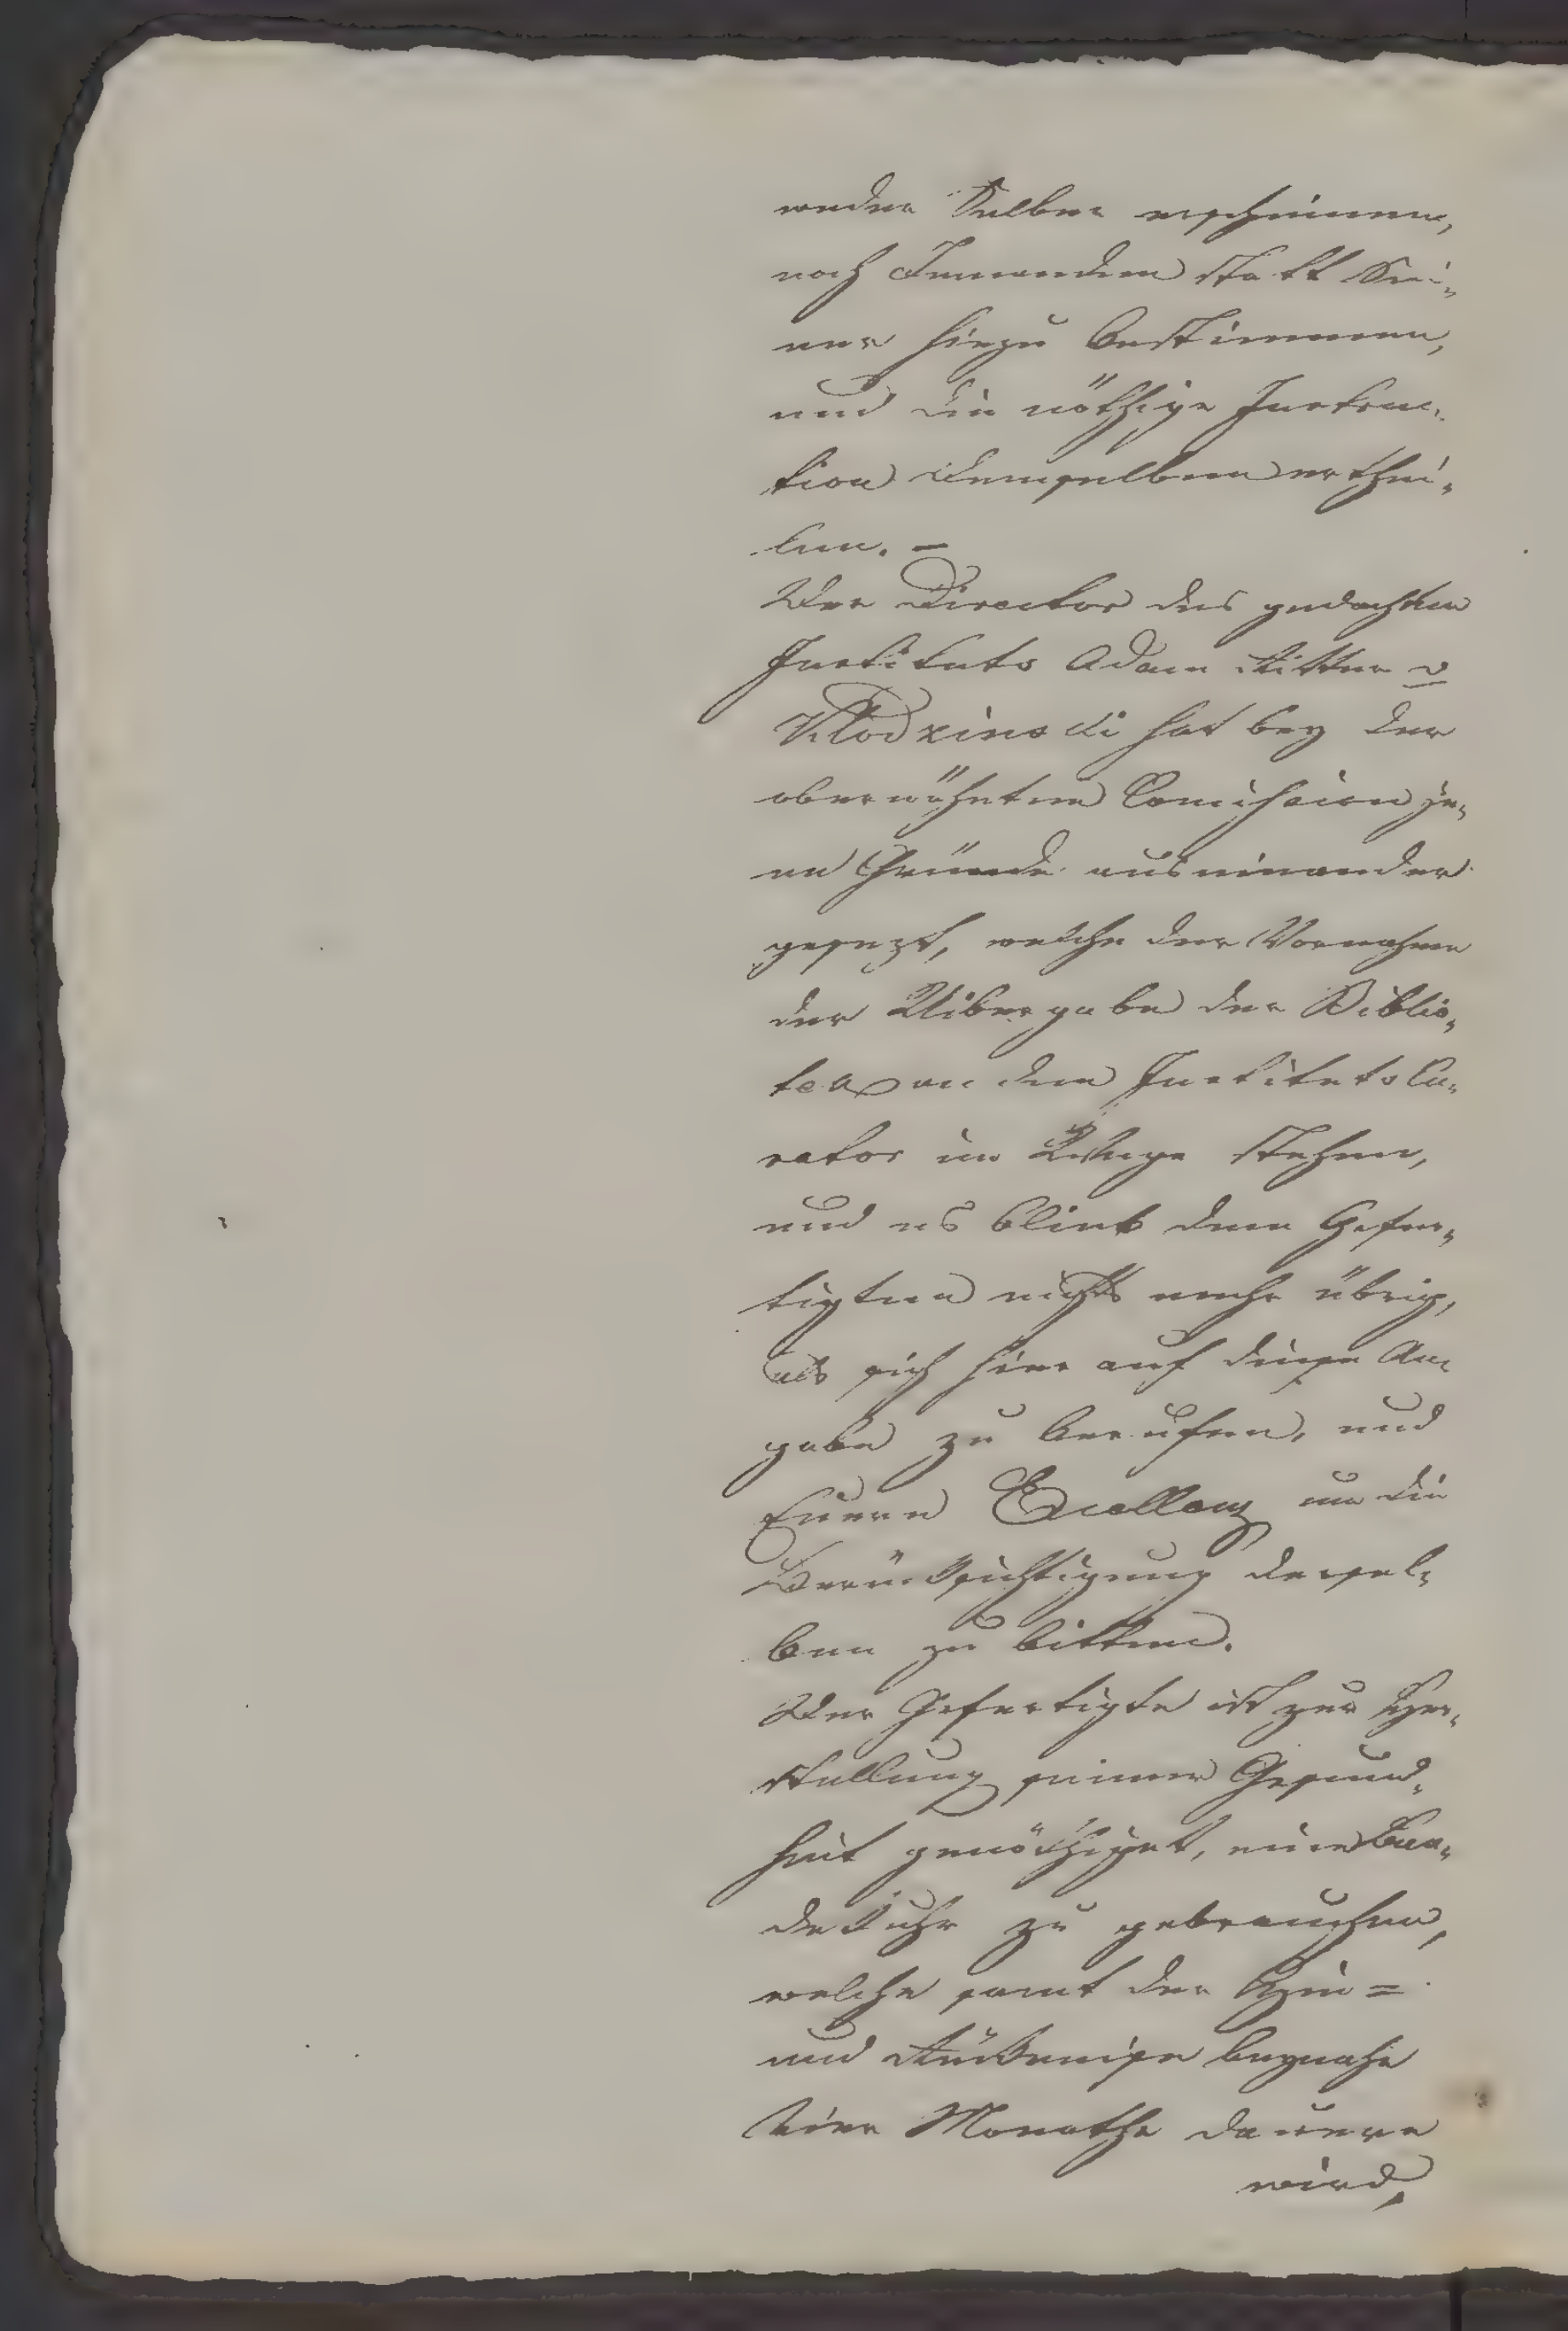 weder Selber erscheinen,
noch Jemanden statt Sei-
ner hiezu bestimmen,
und die nöthige Instruc-
tion demselben erthei-
len. –
Der Director des gedachten
Instituts Adam Ritter v
Kłodzinski hat bey der
oberwähnten Comission je-
ne Gründe auseinander
gesezt, welche der Vornahme
der Uibergabe der Biblio-
tea an den Instituts Cu-
rator im Wege stehen,
und es bleibt dem Gefer-
tigten nichts mehr übrig,
als sich hier auf diese An-
gabe zu berufen, und
Euere Excellenz um die
Berücksichtigung dersel-
ben zu bitten.
Der Gefertigte ist zur Her-
stellung seiner Gesund-
heit genöthiget, eine Baa-
dekuhr zu gebrauchen,
welche samt der Hin=
und Rükreise beynahe
vier Monathe dauern
wird,